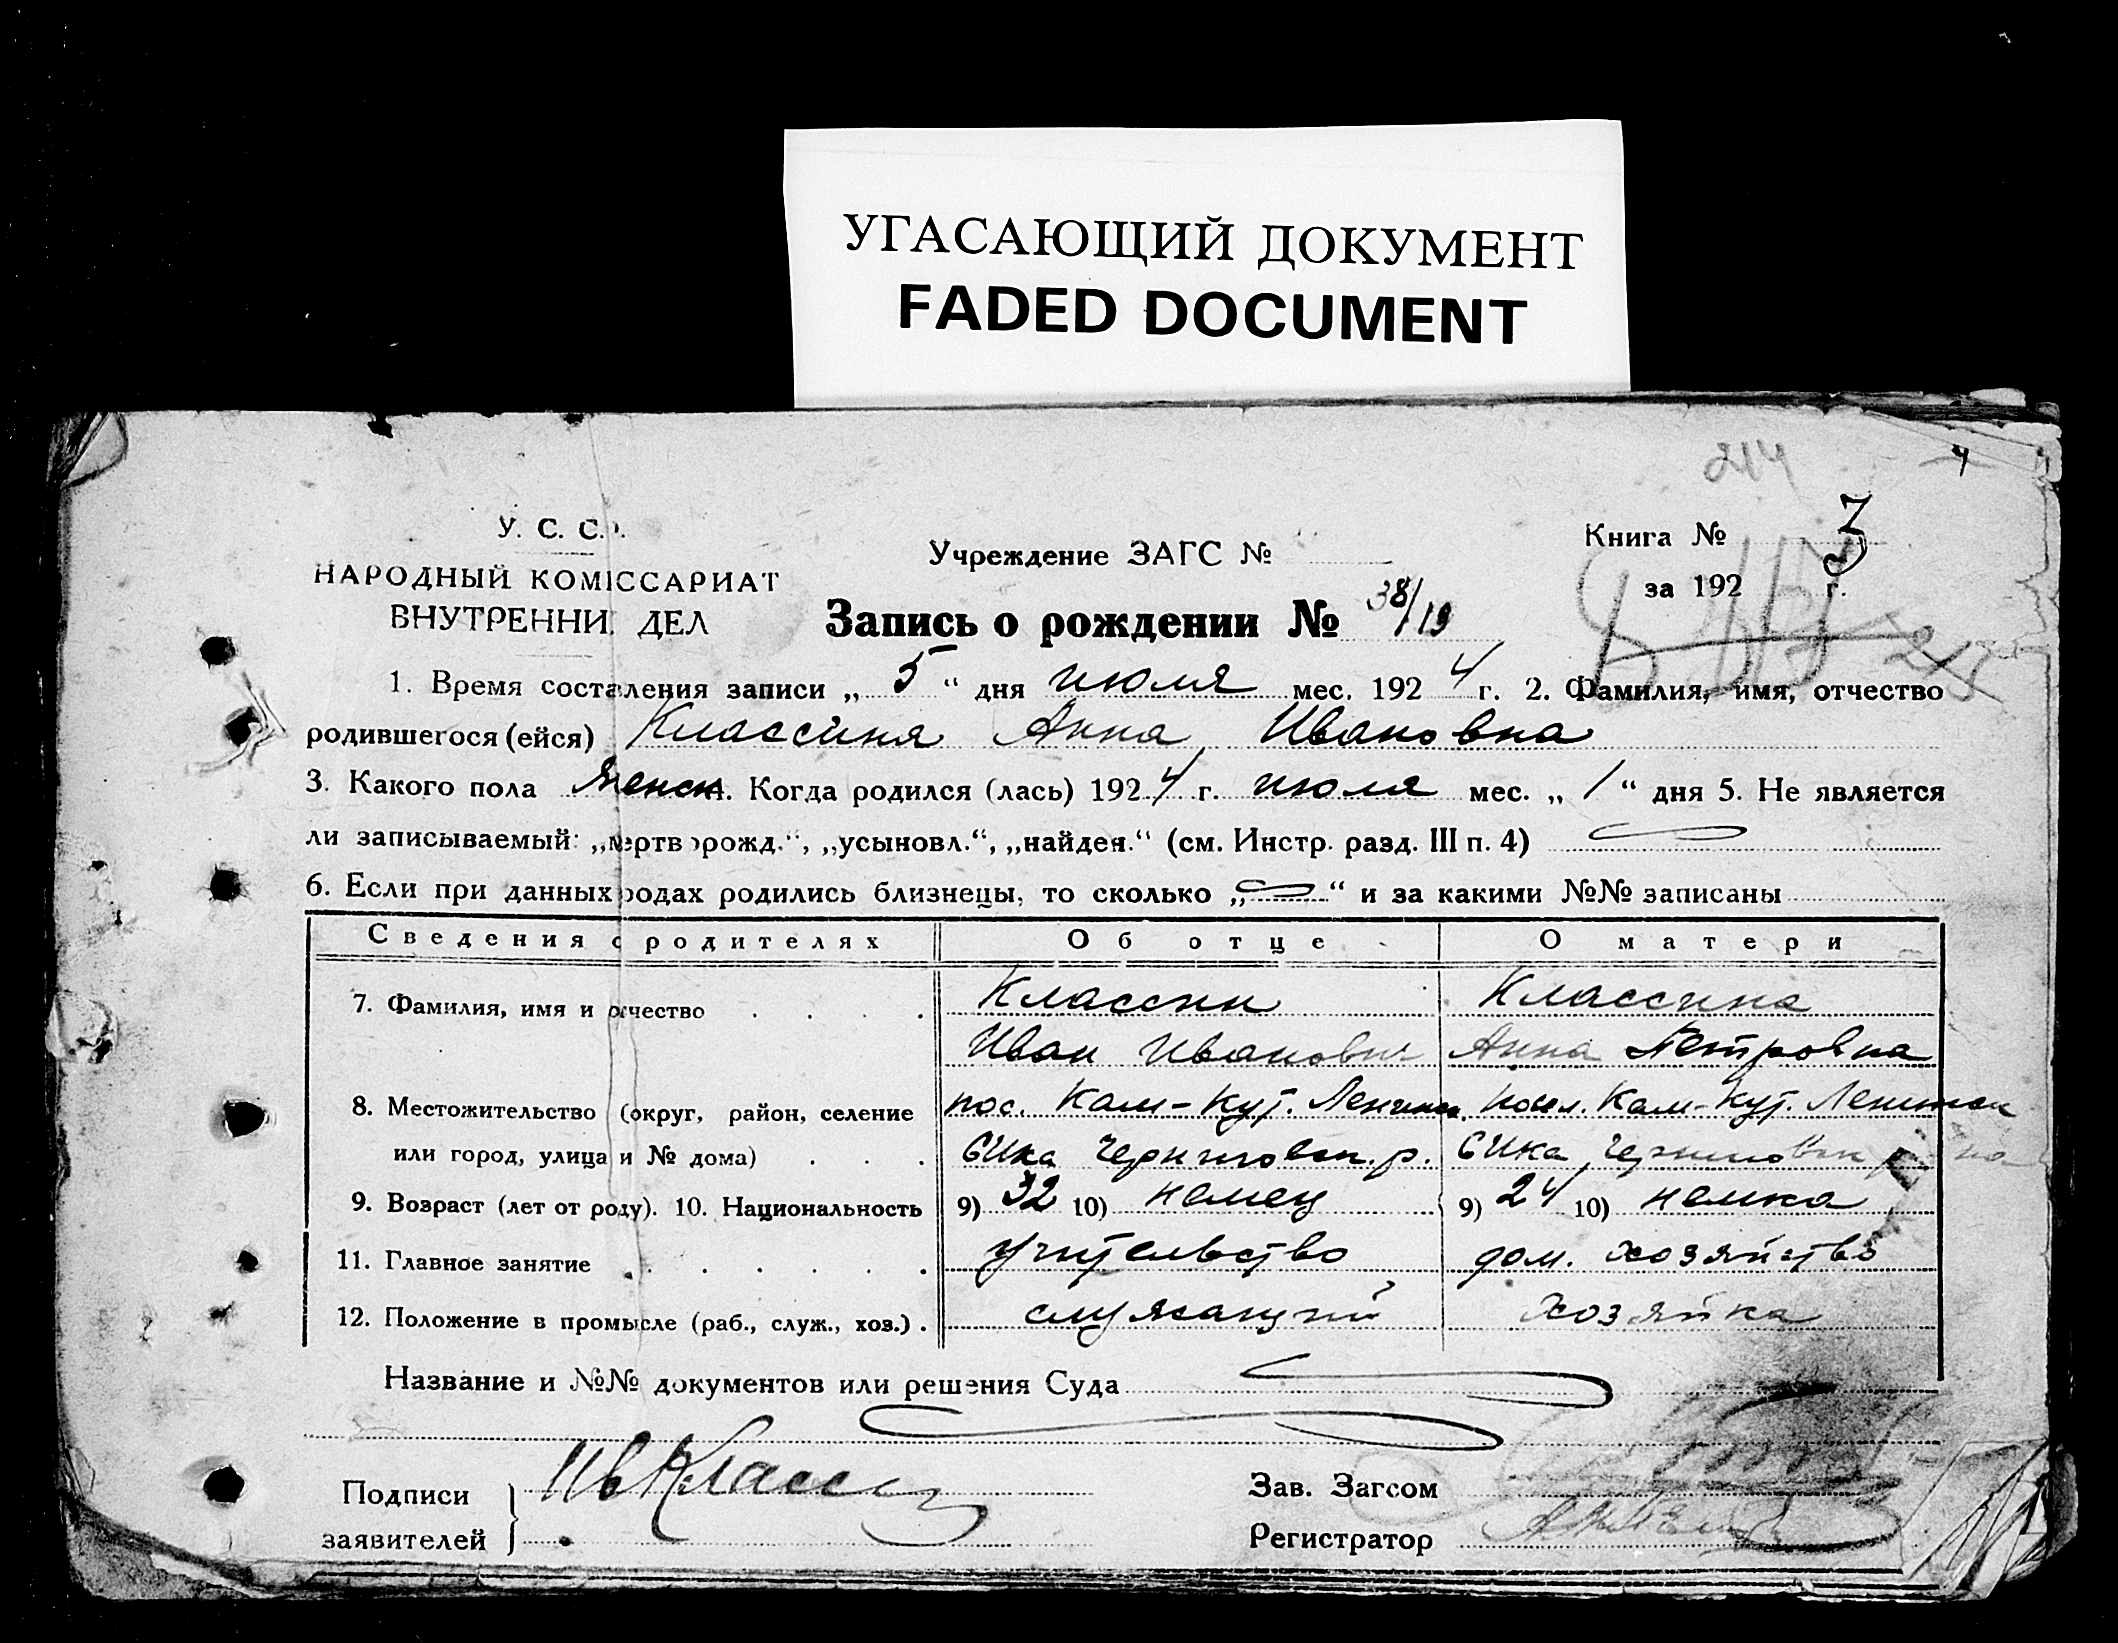 УГАСАЮЩИЙ ДОКУМЕНТ
FADED DOCUMENT
214
4
У. С. С.
Учреждение ЗАГС №
Книга № 3
НАРОДНЫЙ КОМІССАРИАТ
за 192 г.
ВНУТРЕННИ ДЕЛ
Запись о рождении № 38/19
1. Время составления записи „ 5 “ дня июля мес. 192 4 г. 2. Фамилия, имя, отчество
родившегося (ейся) Классина Анна Ивановна
3. Какого пола женск. Когда родился (лась) 192 4 г. июля мес. „ 1 “ дня 5. Не является
ли записываемый: „мертворожд.“, „усыновл.“, „найден.“ (см. Инстр. разд. III п. 4)
6. Если при данных родах родились близнецы, то сколько „ “ и за какими №№ записаны
Сведения о родителях Об отце О матери
7. Фамилия, имя и отчество Классин Классина
Иван Иванович Анна Петровна
8. Местожительство (округ, район, селение пос. Кам-Кут. Ленинск. посел. Кам-Кут. Ленинск
или город, улица и № дома) Черниговск. р. Черниговск
9. Возраст (лет от роду). 10. Национальность 9) 32 10) немец 9) 24 10) немка
11. Главное занятие учительство дом. хозяйство
12. Положение в промысле (раб., служ., хоз.) служащий хозяйка
Название и №№ документов или решения Суда
Подписи Ив Класси
заявителей
Зав. Загсом
Регистратор